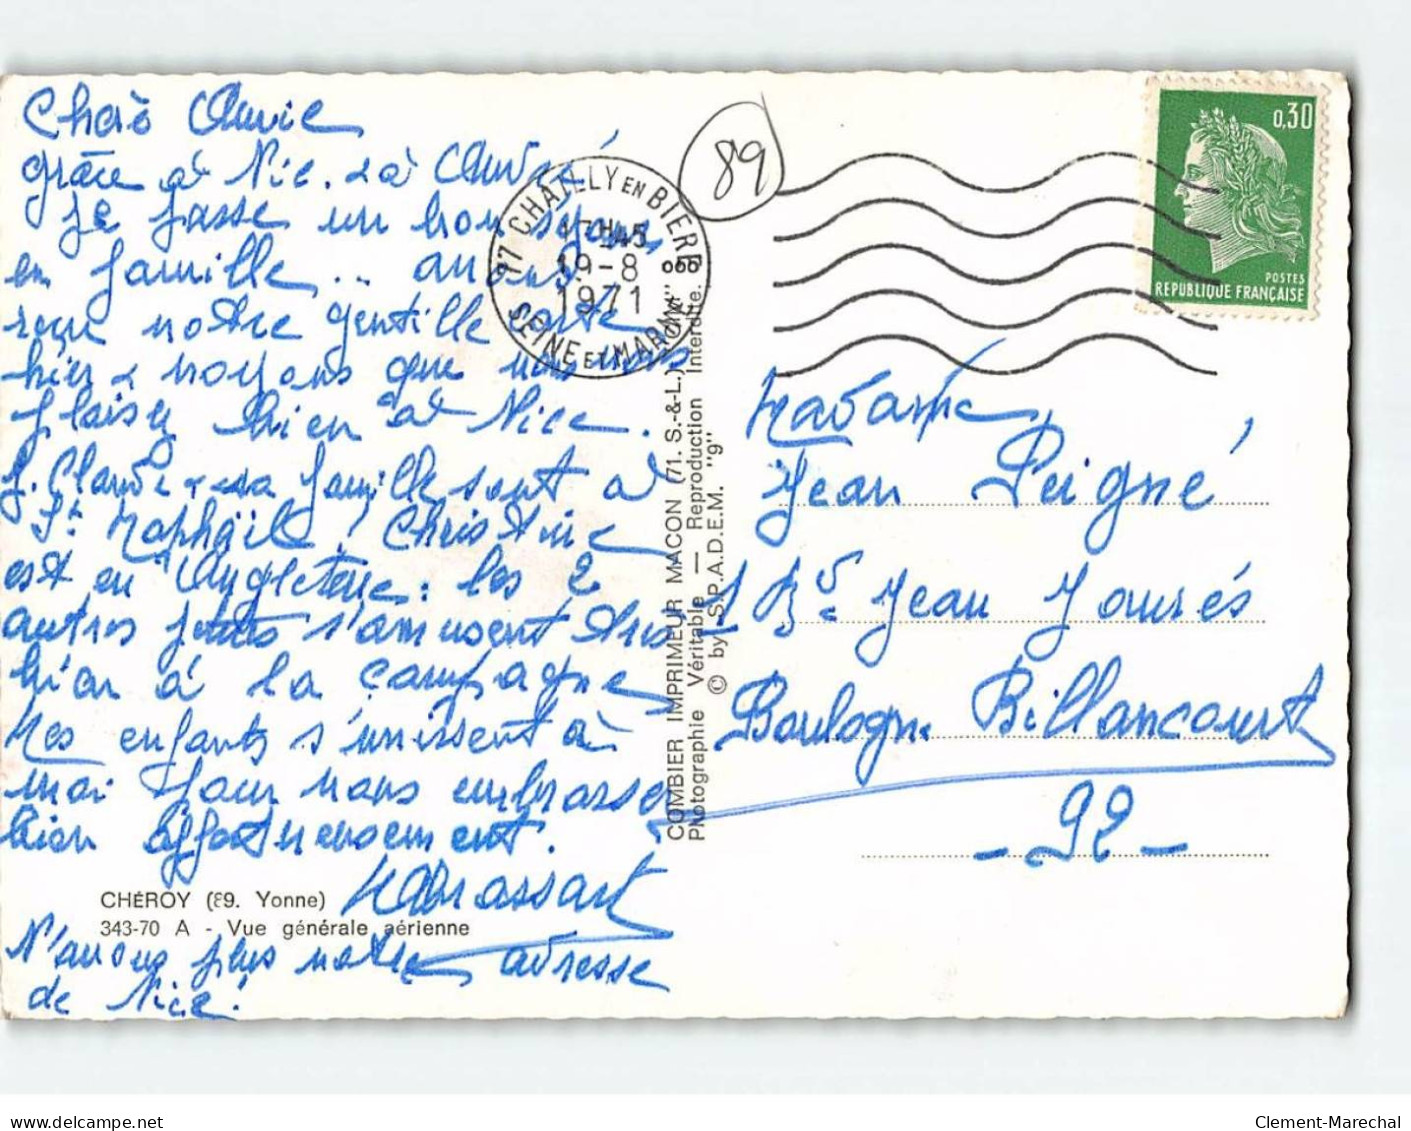 Chère Amie
grâce à Nic. & à André
je passe un bon séjour
en famille... avons
reçu votre gentille carte
hier & voyons que vous vous
plaisez bien à Nice.
J. Claude & sa famille sont à
St Raphaël, Christine
est en Angleterre : les 2
autres petits s'amusent très
bien à la campagne
Mes enfants s'unissent à
moi pour vous embrasser
bien affectueusement.
CHÉROY (89. Yonne)
343-70 A - Vue générale aérienne
N'avons plus votre adresse
de Nice!
COMBIER IMPRIMEUR MACON (71. S.-&-L.)
Photographie Véritable — Reproduction Interdite.
© by S.P.A.D.E.M. "9"
89
77 CHAILLY EN BIERE
17H45
19-8
1971
SEINE ET MARNE
0,30
POSTES
REPUBLIQUE FRANÇAISE
Madame
Jean Peigné
1 Bd Jean Jaurés
Boulogne Billancourt
- 92 -
www.delcampe.net
Clement-Marechal